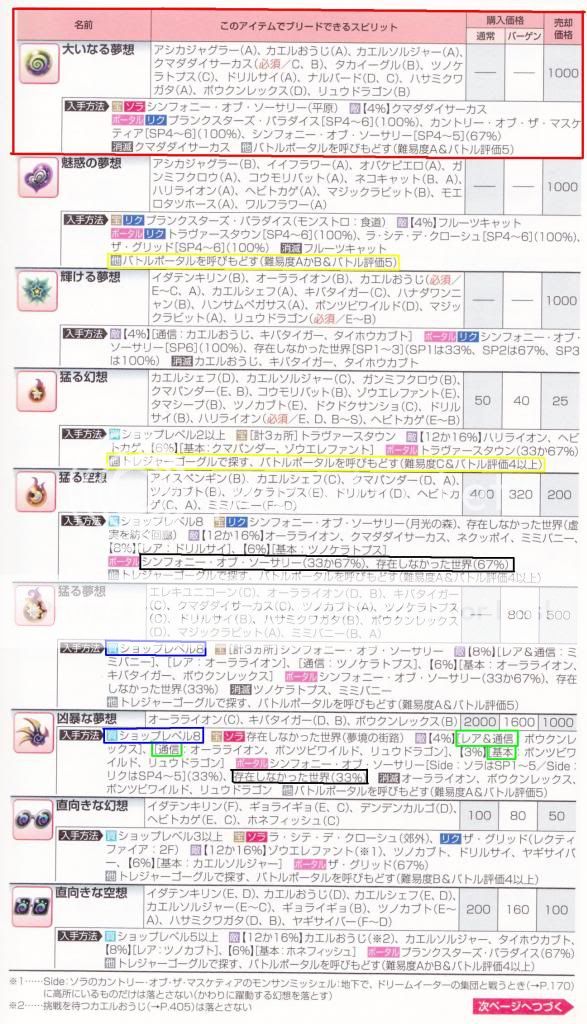 名前 このアイテムでブリードできるスピリット 購入価格 売却価格
通常 バーゲン
大いなる夢想 アシカジャグラー(A)、カエルおうじ(A)、カエルソルジャー(A)、
クマダダイサーカス(必須/C、B)、タカイーグル(B)、ツノケ
ラトプス(C)、ドリルサイ(A)、ナルバード(D、C)、ハサミクワ
ガタ(A)、ボウクンレックス(D)、リュウドラゴン(B)
― ― 1000
入手方法 宝 ソラ シンフォニー・オブ・ソーサリー(平原) 敵【4%】クマダダイサーカス
ポータル リク プランクスターズ・パラダイス[SP4～6](100%)、カントリー・オブ・ザ・マスケ
ティア[SP4～6](100%)、シンフォニー・オブ・ソーサリー[SP4～5](67%)
消滅 クマダダイサーカス 他 バトルポータルを呼びもどす(難易度A&バトル評価5)
魅惑の夢想 アシカジャグラー(B)、イイフラワー(A)、オバケピエロ(A)、ガ
ンミフクロウ(A)、コウモリバット(A)、ネコキャット(B、A)、
ハリライオン(A)、ヘビトカゲ(A)、マジックラビット(B)、モエ
ロタツホース(A)、ワルフラワー(A)
― ― 1000
入手方法 宝 リク プランクスターズ・パラダイス(モンストロ：食道) 敵【4%】フルーツキャット
ポータル リク トラヴァースタウン[SP4～6](100%)、ラ・シテ・デ・クローシュ[SP4～6](100%)、
ザ・グリッド[SP4～6](100%) 消滅 フルーツキャット
他 バトルポータルを呼びもどす(難易度AかB&バトル評価5)
輝ける夢想 イダテンキリン(B)、オーラライオン(B)、カエルおうじ(必須/
E～C、A)、カエルシェフ(A)、キバタイガー(C)、ハナダワンニ
ャン(B)、ハンサムペガサス(A)、ポンツビワイルド(D)、マジッ
クラビット(A)、リュウドラゴン(必須/E～B)
― ― 1000
入手方法 敵【4%】[通信：カエルおうじ、キバタイガー、タイホウカブト] ポータル リク シンフォニー・オブ・
ソーサリー[SP6](100%)、存在しなかった世界[SP1～3](SP1は33%、SP2は67%、SP3
は100%) 消滅 カエルおうじ、キバタイガー、タイホウカブト
猛る幻想 カエルシェフ(D)、カエルソルジャー(C)、ガンミフクロウ(B)、
クマパンダー(E、B)、コウモリバット(B)、ゾウエレファント(E)、
タマシープ(B)、ツノカブト(E)、ドクドクサンショ(C)、ドリル
サイ(B)、ハリライオン(必須/E、D、B～S)、ヘビトカゲ(E～B)
50 40 25
入手方法 買 ショップレベル2以上 宝[計3ヵ所]トラヴァースタウン 敵【12か16%】ハリライオン、ヘビ
トカゲ、【6%】[基本：クマパンダー、ゾウエレファント] ポータル トラヴァースタウン(33か67%)
他 トレジャーゴーグルで探す、バトルポータルを呼びもどす(難易度C&バトル評価4以上)
猛る空想 アイスペンギン(B)、カエルシェフ(C)、クマパンダー(D、A)、
ツノカブト(B)、ツノケラトプス(E)、ドリルサイ(D)、ヘビトカ
ゲ(C、A)、ミミバニー(F～D)
400 320 200
入手方法 買 ショップレベル8 宝 リク シンフォニー・オブ・ソーサリー(月光の森)、存在しなかった世界(虚
実を紡ぐ回廊) 敵【12か16%】オーラライオン、クマダダイサーカス、ネクッポイ、ミミバニー、
【8%】[レア：ドリルサイ]、【6%】[基本：ツノケラトプス]
ポータル シンフォニー・オブ・ソーサリー(33か67%)、存在しなかった世界(67%)
他 トレジャーゴーグルで探す、バトルポータルを呼びもどす(難易度A&バトル評価4以上)
猛る夢想 エレキユニコーン(C)、オーラライオン(D、B)、キバタイガー
(C)、クマダダイサーカス(C)、ツノカブト(A)、ツノケラトプス
(D)、ドリルサイ(B)、ハサミクワガタ(B)、ボウクンレックス
(D)、マジックラビット(A)、ミミバニー(B、A)
800 500
入手方法 買 ショップレベル8 宝[計3ヵ所]シンフォニー・オブ・ソーサリー 敵【8%】[レア&通信：ミ
ミバニー]、[レア：オーラライオン]、[通信：ツノケラトプス]、【6%】[基本：オーラライオン、
キバタイガー、ボウクンレックス] ポータル シンフォニー・オブ・ソーサリー(33か67%)、存在
しなかった世界(33%) 消滅 ツノケラトプス、ミミバニー
他 トレジャーゴーグルで探す、バトルポータルを呼びもどす(難易度A&バトル評価5)
凶暴な夢想 オーラライオン(C)、キバタイガー(D、B)、ボウクンレックス(B) 2000 1600 1000
入手方法 買 ショップレベル8 宝 ソラ 存在しなかった世界(夢境の街路) 敵【4%】[レア&通信：ボウクンレ
ックス]、[通信：オーラライオン、ポンツビワイルド、リュウドラゴン]、【3%】[基本：ポンツビワ
イルド、リュウドラゴン] ポータル シンフォニー・オブ・ソーサリー[Side：ソラはSP1～5／Side：
リクはSP4～5](33%)、存在しなかった世界(33%) 消滅 オーラライオン、ボウクンレックス、
ポンツビワイルド、リュウドラゴン 他 バトルポータルを呼びもどす(難易度A&バトル評価5)
直向きな幻想 イダテンキリン(F)、ギョライギョ(E、C)、デンデンカルゴ(D)、
ヘビトカゲ(E、C)、ホネフィッシュ(C)
100 80 50
入手方法 買 ショップレベル3以上 宝 ソラ ラ・シテ・デ・クローシュ(郊外)、リク ザ・グリッド(レクティ
ファイア：2F) 敵【12か16%】ゾウエレファント(※1)、ツノカブト、ドリルサイ、ヤギサイバ
ー、【6%】[基本：カエルソルジャー] ポータル ザ・グリッド(67%)
他 トレジャーゴーグルで探す、バトルポータルを呼びもどす(難易度B&バトル評価4以上)
直向きな空想 イダテンキリン(E、D)、カエルおうじ(D)、カエルシェフ(E、D)、
カエルソルジャー(E～C)、ギョライギョ(B)、ツノカブト(E～
A)、ハサミクワガタ(D、B)、ヤギサイバー(F～D)
200 160 100
入手方法 買 ショップレベル5以上 敵【12か16%】カエルおうじ(※2)、カエルソルジャー、タイホウカブト、
【8%】[レア：ツノカブト]、【6%】[基本：ホネフィッシュ] ポータル プランクスターズ・パラダイス(67%)
他 トレジャーゴーグルで探す、バトルポータルを呼びもどす(難易度AかB&バトル評価4以上)
※1……Side：ソラのカントリー・オブ・ザ・マスケティアのモンサンミッシェル：地下で、ドリームイーターの集団と戦うとき(→P.170)
に高所にいるものだけは落とさない(かわりに躍動する幻想を落とす)
※2……挑戦を待つカエルおうじ(→P.405)は落とさない
次ページへつづく